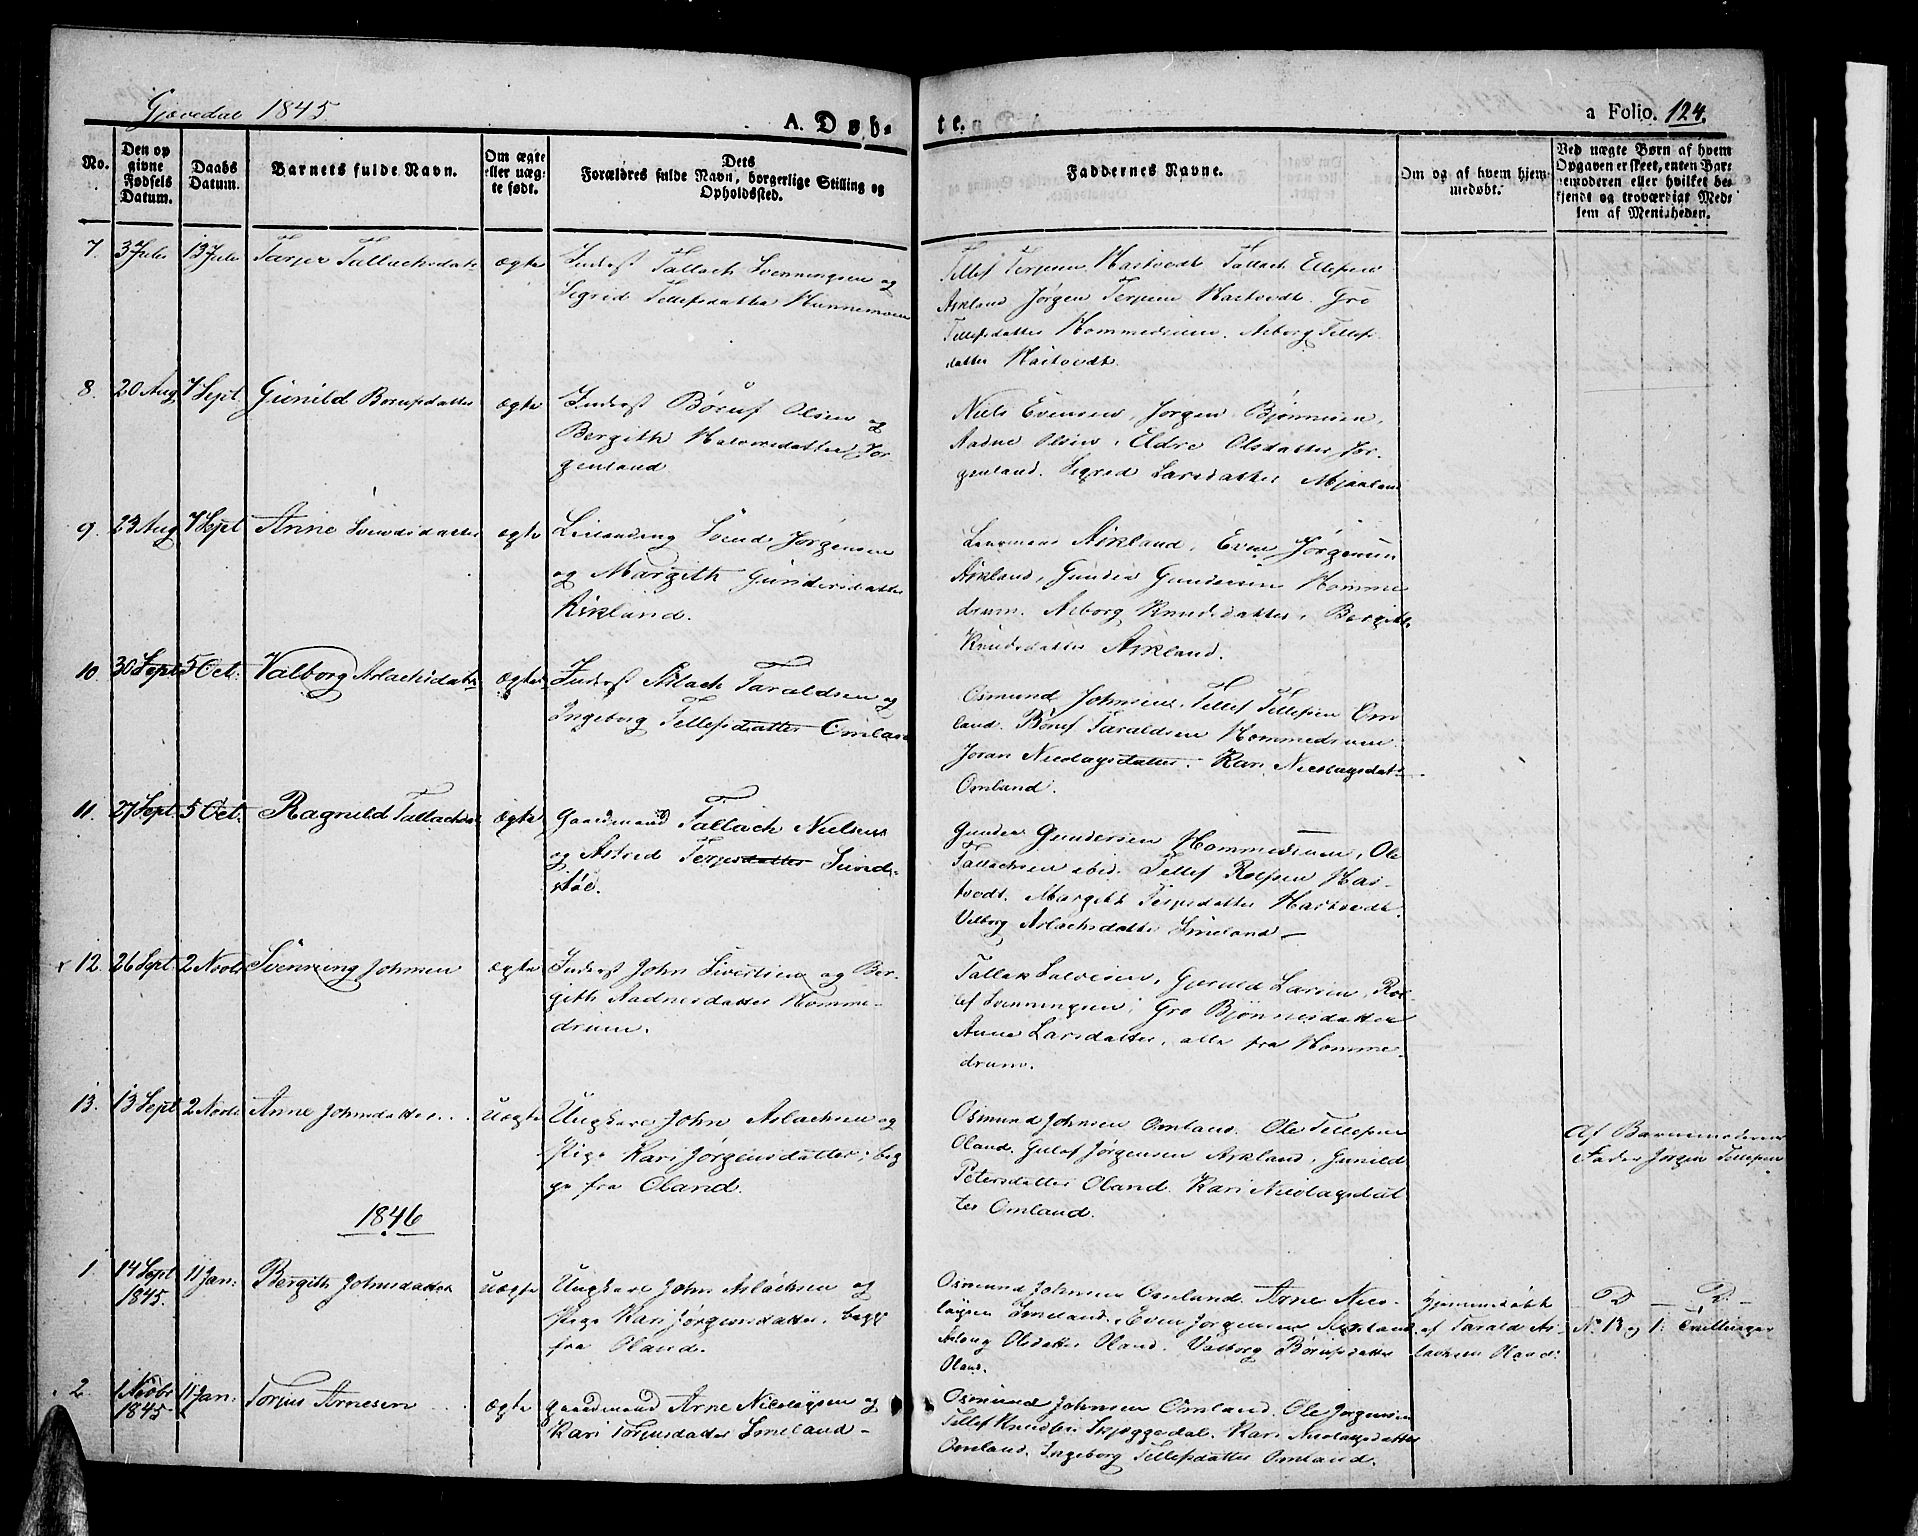 Gjøvedal 1845.
A. Døb-
te.
a Folio. 124.
No.
Den op
givne
Fødsels
Datum.
Daabs
Datum.
Barnets fulde Navn.
Om ægte
eller uæg-
te født.
Dets
Forældres fulde Navn, borgerlige Stilling og
Opholdssted.
Faddernes Navne.
Om og af hvem hjem-
medøbt.
Ved uægte Børn af hvem
Opgaven er skeet, enten Bar-
nemoderen eller hvilket be-
kjendt og troværdigt Med-
lem af Menigheden.
7. 3 Julii 13 Julii Tarjer Tallachsdatt ægte
Inderst Tallach Svenningsen og
Sigrid Tellefsdatter
Tellef Terjesen Hastvedt. Tallach Ellefsen
Askland Jørgen Terjesen Hastvedt. Gro
Tellefsdatter Hommedruen. Asborg Tellefs
datter Hastvedt.
8. 20 Aug 7 Sept. Gunild Børufsdatter ægte
Inderst Børuf Olsen og
Bergith Halvorsdatter, Jør
genland
Niels Evensen, Jørgen Bjønnesen,
Aadne Olsen, Eldre Olsdatter Jør-
genland. Sigred Larsdatter Mjaaland
9. 23 Aug 7 Sept Anne Svendsdatter ægte
Leilænding Svend Jørgensen
og Margith Gundersdatter
Askland.
Askland, Even Jørgensen
Askland, Gunder Gundersen Homme
drum. Asborg Knudsdatter, Bergith
Knudsdatter Askland.
10. 30 Sept 5 Oct: Valborg Aslachsdatt ægte
Inderst Aslach Taraldsen og
Ingeborg Tellefsdatter Omland
Osmund Johnsen, Tellef Tellefsen Om
land. Børuf Taraldsen Hommedruen.
Joran Nicolaysdatter. Kari Nicolaysdatt.
Omland.
11. 27 Sept. 5 Oct. Ragnild Tallachsd ægte
Gaardmand Tallach Nielsen
og Astred Terjesdatter Sunds-
støe.
Gunder Gundersen Hommedruen, Ole
Tallachsen ibid. Tellef Roefsen Has-
tvedt. Margith Terjesdatter Hastvedt.
Valborg Aslachsdatter Smeland —
12. 26 Sept. 2 Novbr Svenning Johnsen ægte
Inderst John Sivertsen og Ber-
gith Aadnesdatter Homme-
drum.
Tallak Salvesen, Gjeruld Larsen, Ro-
ef Svenningsen, Gro Bjønnesdatter
Anne Larsdatter, alle fra Homme-
drum.
13. 13 Sept 2 Novbr Anne Johnsdatter. uægte
Ungkarl John Aslachsen og
Pige Kari Jørgensdatter, beg
ge fra Oland.
Osmund Johnsen Omland. Ole Tellefsen
Oland. Gulof Jørgensen Askland, Gunild
Petersdatter Oland. Kari Nicolaysdat
ter Omland.
Af Barnemoderens
Fader Jørgen Tellefsen
1846
1. 14 Sept
1845. 11 Jan: Bergith Johnsdatter uægte
Ungkarl John Aslachsen og
Pige Kari Jørgensdatter, begge
fra Oland.
Osmund Johnsen Omland. Arne Nico-
laysen Smeland, Even Jørgensen Askland.
Aslaug Olsdatter Oland. Valborg Børufsdatter
Oland.
Hjemmedøbt
af Tarald As-
lachsen Oland.
D — D. —
No. 13 og 1: Tvillinger
2. 1 Novbr
1845. 11 Jan: Torjus Arnesen ægte
Gaardmand Arne Nicolaysen og
Kari Torjusdatter Smeland —
Osmund Johnsen Omland. Ole Jørgensen
Tellef Knudsen Skjeggedal. Kari Nicolaysdatter
Omland. Ingeborg Tellefsdatter Omland.